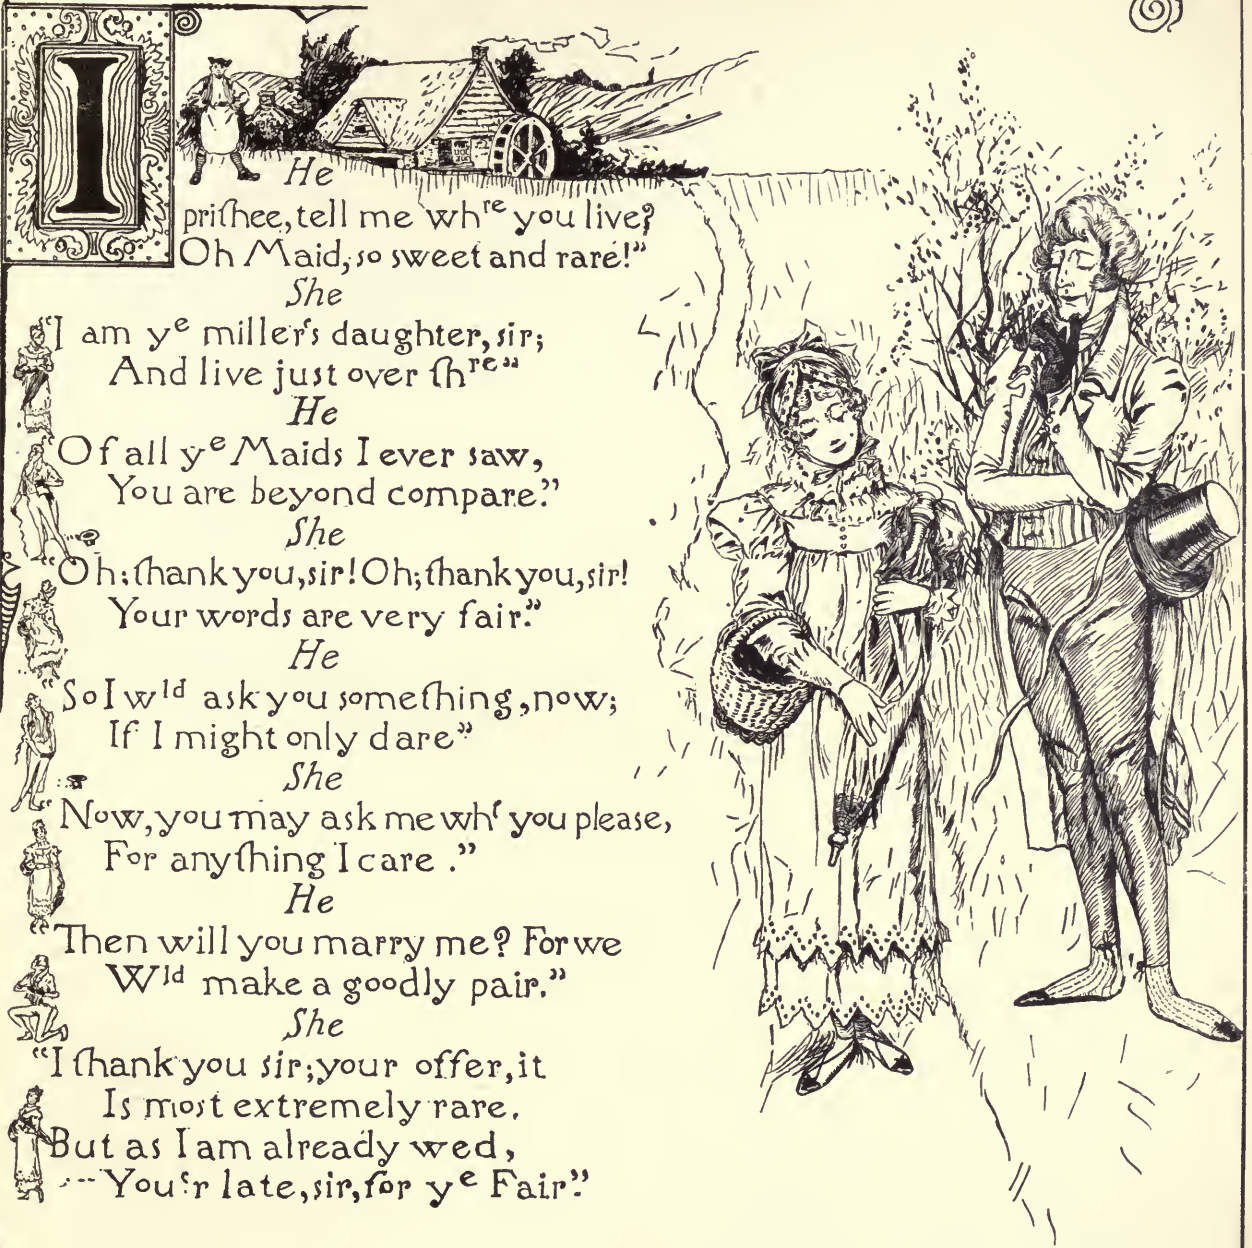 I
He
prithee, tell me whre you live?
Oh Maid, so sweet and rare!"
She
"I am ye miller's daughter, sir;
And live just over thre"
He
Of all ye Maids I ever saw,
You are beyond compare."
She
"Oh; thank you, sir! Oh; thank you, sir!
Your words are very fair."
He
"So I wld ask you something, now;
If I might only dare"
She
"Now, you may ask me wht you please,
For anything I care."
He
"Then will you marry me? For we
Wld make a goodly pair."
She
"I thank you sir; your offer, it
Is most extremely rare.
But as I am already wed,
You'r late, sir, for ye Fair."